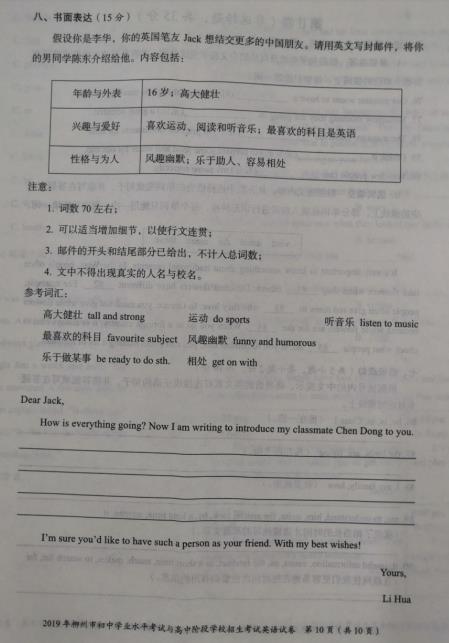 八、书面表达(15分)
假设你是李华,你的英国笔友 Jack 想结交更多的中国朋友。请用英文写封邮件,将你
的男同学陈东介绍给他。内容包括:
年龄与外表 16岁;高大健壮
兴趣与爱好 喜欢运动、阅读和听音乐;最喜欢的科目是英语
性格与为人 风趣幽默;乐于助人、容易相处
注意:
1. 词数 70 左右;
2. 可以适当增加细节,以使行文连贯;
3. 邮件的开头和结尾部分已给出,不计入总词数;
4. 文中不得出现真实的人名与校名。
参考词汇:
高大健壮 tall and strong 运动 do sports 听音乐 listen to music
最喜欢的科目 favourite subject 风趣幽默 funny and humorous
乐于做某事 be ready to do sth. 相处 get on with
Dear Jack,
How is everything going? Now I am writing to introduce my classmate Chen Dong to you.
I'm sure you'd like to have such a person as your friend. With my best wishes!
Yours,
Li Hua
2019 年柳州市初中学业水平考试与高中阶段学校招生考试英语试卷 第 10 页(共 10 页)